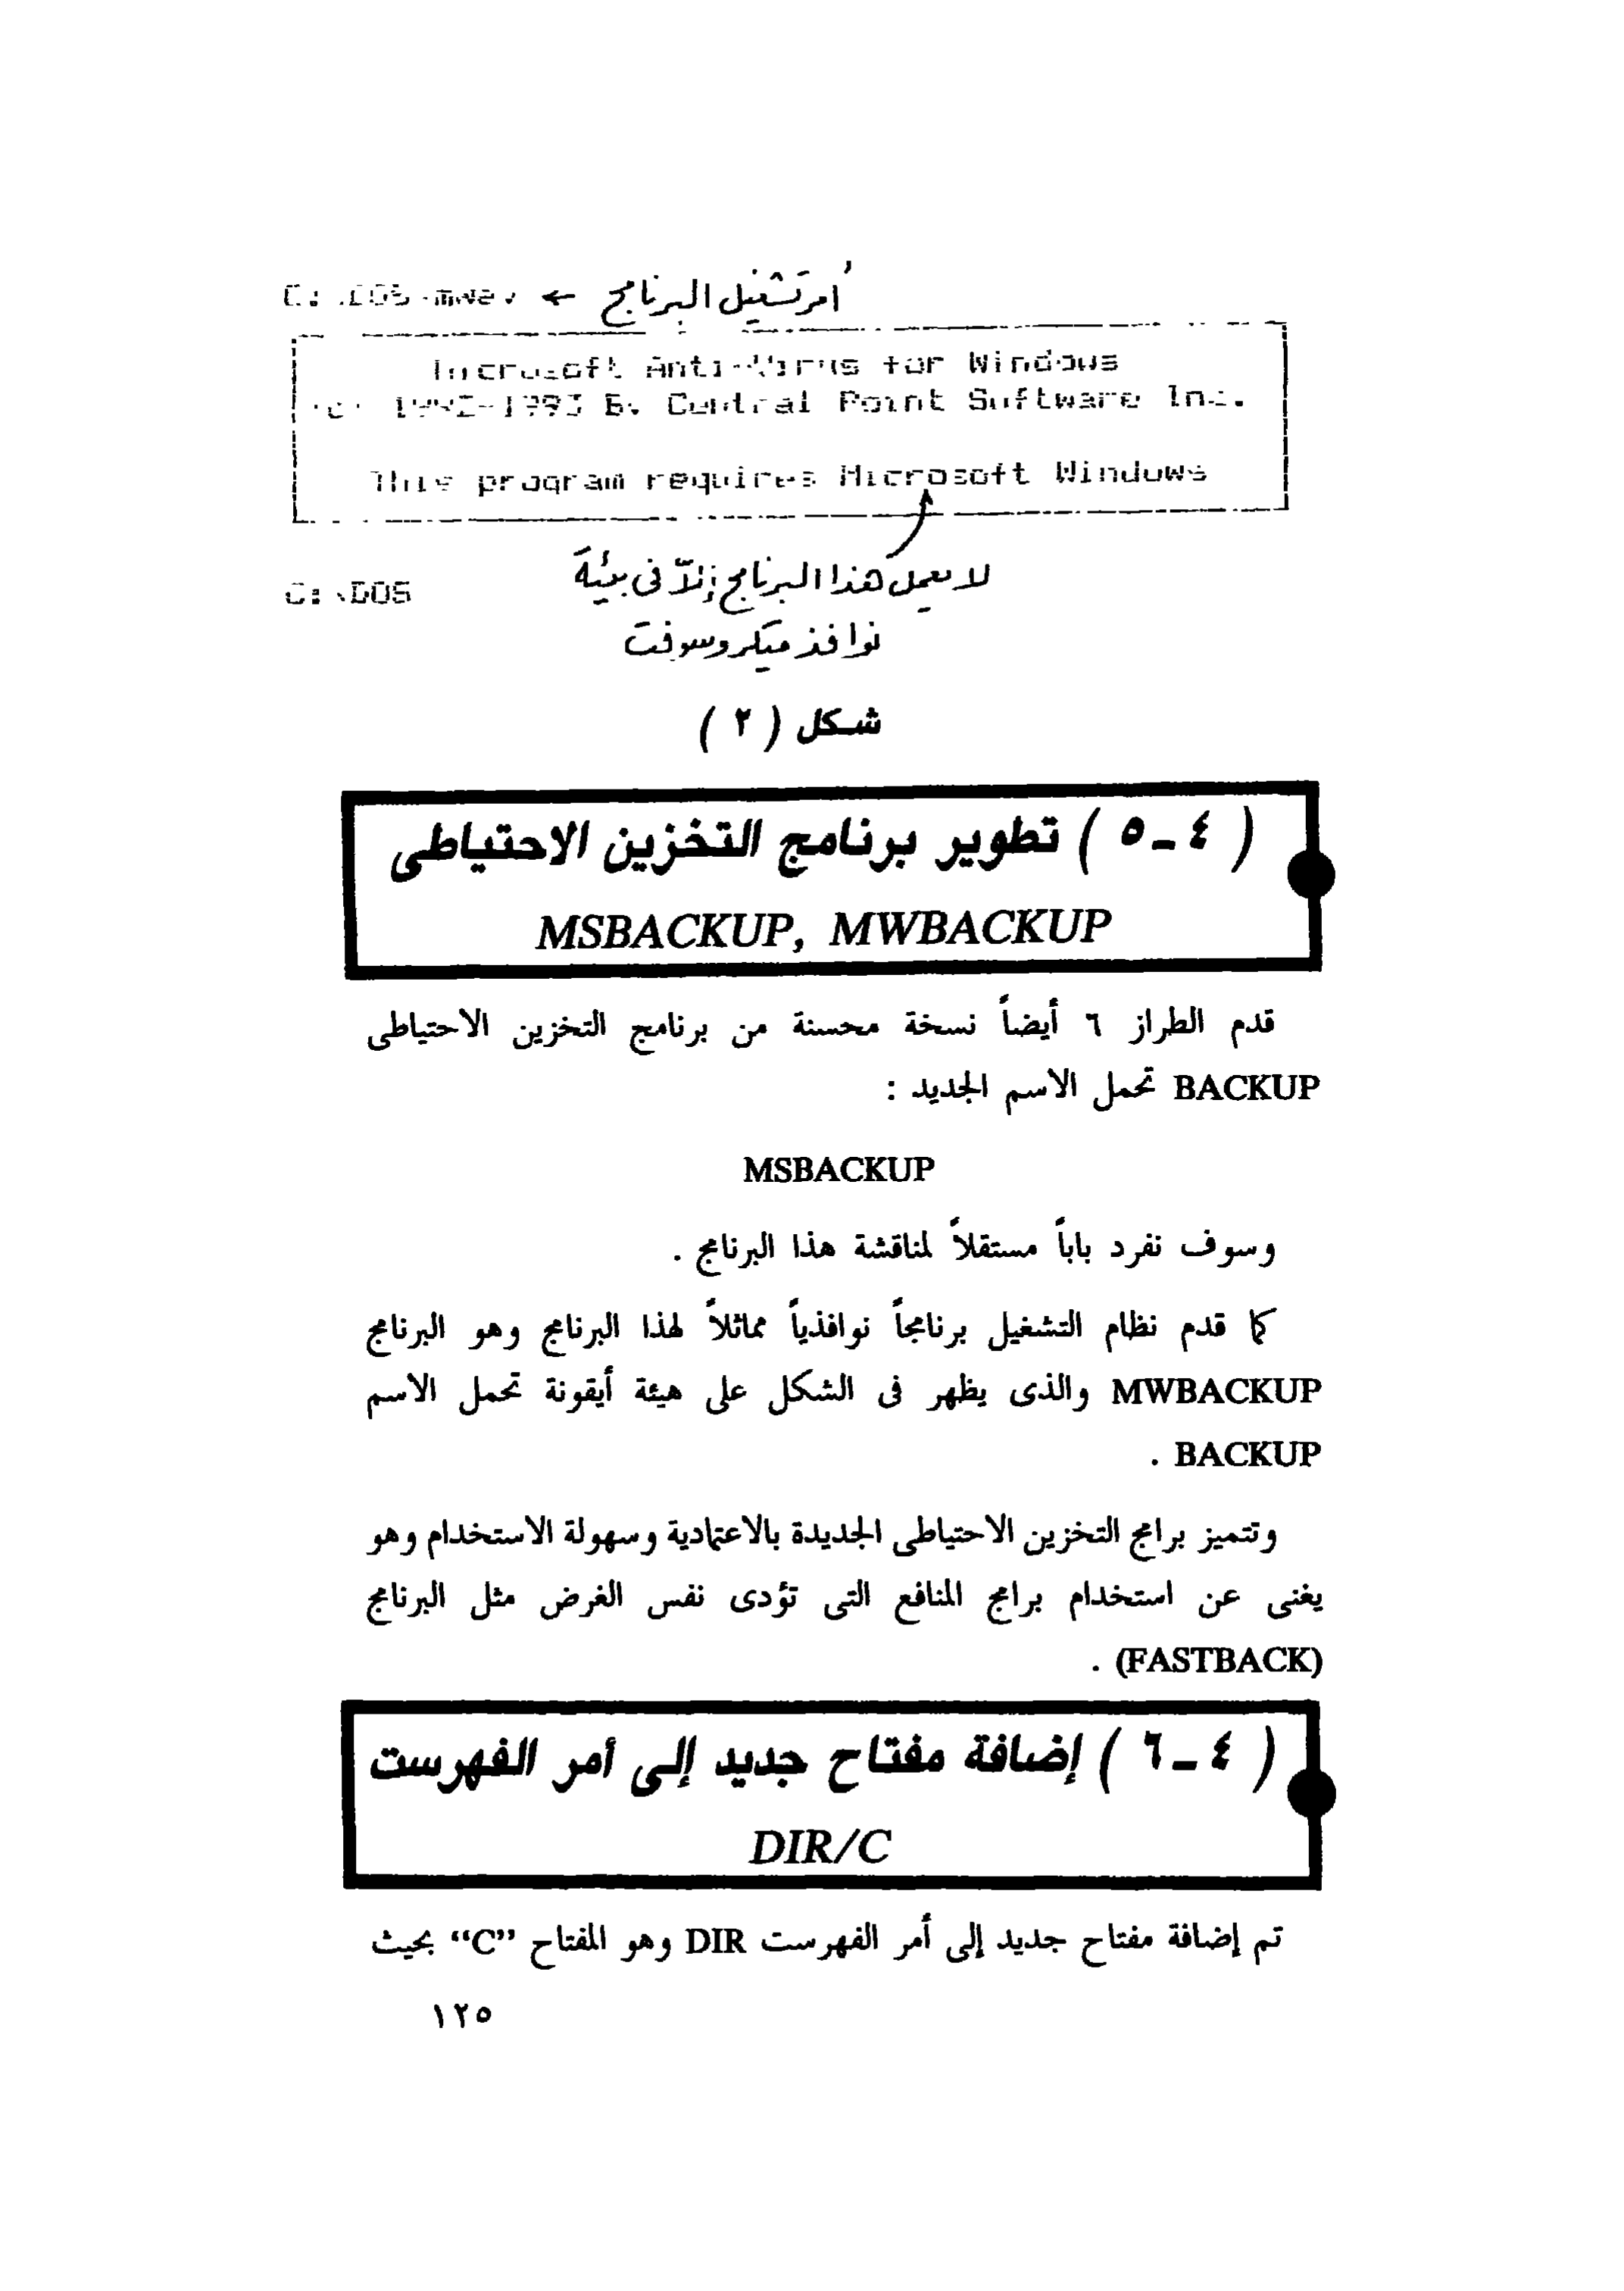 C:\DOS>mwav ← أمر تشغيل البرنامج
Microsoft Anti-Virus for Windows
(c) 1992-1993 By Central Point Software Inc.
This program requires Microsoft Windows
لا يعمل هذا البرنامج إلاّ فى بيئة
C:\DOS
نوافذ ميكروسوفت
شكل ( ٢ )
( ٤ ــ ٥ ) تطوير برنامج التخزين الاحتياطى
MSBACKUP, MWBACKUP
قدم الطراز ٦ أيضاً نسخة محسنة من برنامج التخزين الاحتياطى
BACKUP تحمل الاسم الجديد :
MSBACKUP
وسوف نفرد باباً مستقلاً لمناقشة هذا البرنامج .
كما قدم نظام التشغيل برنامجاً نوافذياً مماثلاً لهذا البرنامج وهو البرنامج
MWBACKUP والذى يظهر فى الشكل على هيئة أيقونة تحمل الاسم
BACKUP .
وتتميز برامج التخزين الاحتياطى الجديدة بالاعتمادية وسهولة الاستخدام وهو
يغنى عن استخدام برامج المنافع التى تؤدى نفس الغرض مثل البرنامج
(FASTBACK) .
( ٤ ــ ٦ ) إضافة مفتاح جديد إلى أمر الفهرست
DIR/C
تم إضافة مفتاح جديد إلى أمر الفهرست DIR وهو المفتاح “C” بحيث
١٢٥